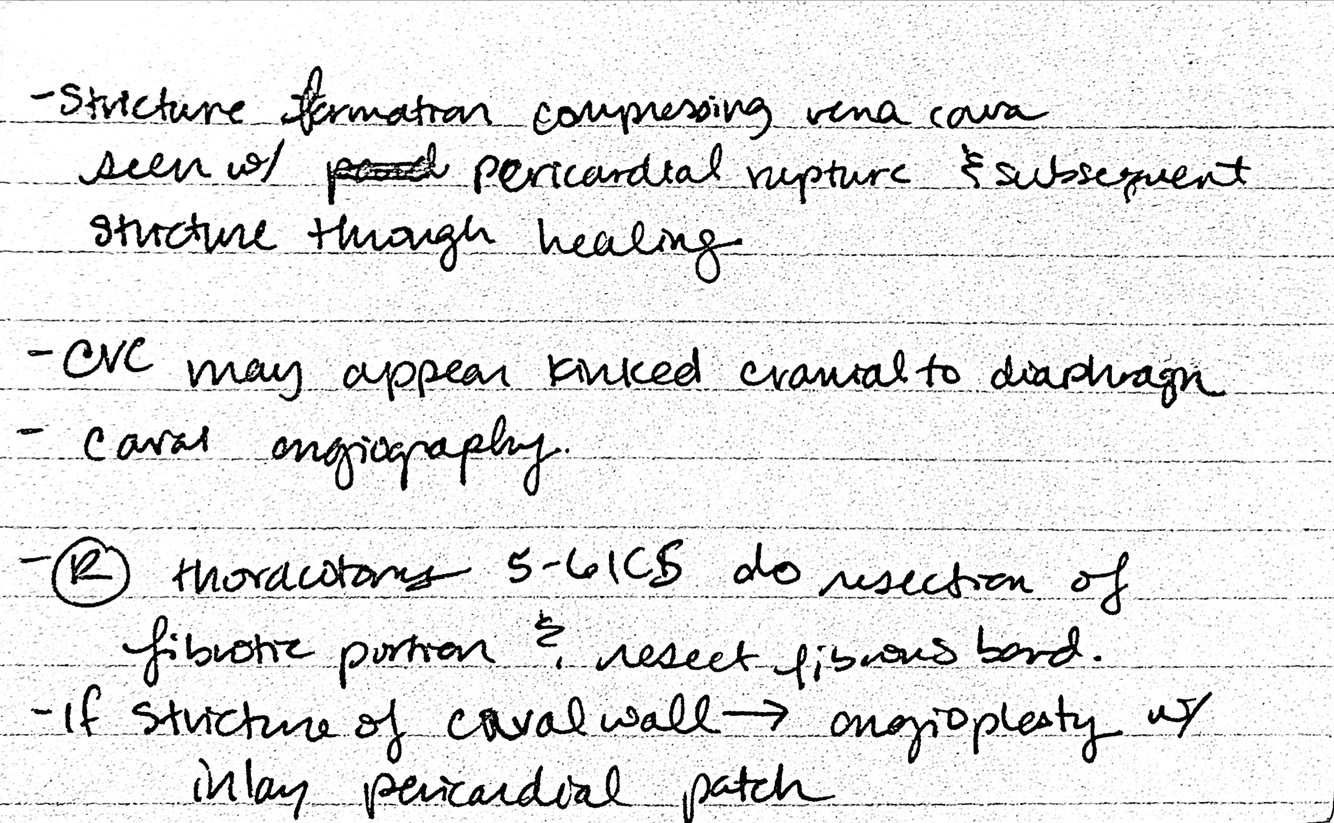 - Stricture formation compressing vena cava
seen w/ pericardial rupture & subsequent
stricture through healing
- CVC may appear kinked cranial to diaphragm
- caval angiography.
- Ⓡ thoracotomy 5-6 ICS do resection of
fibrotic portion & resect fibrous band.
- If stricture of caval wall → angioplasty w/
inlay pericardial patch